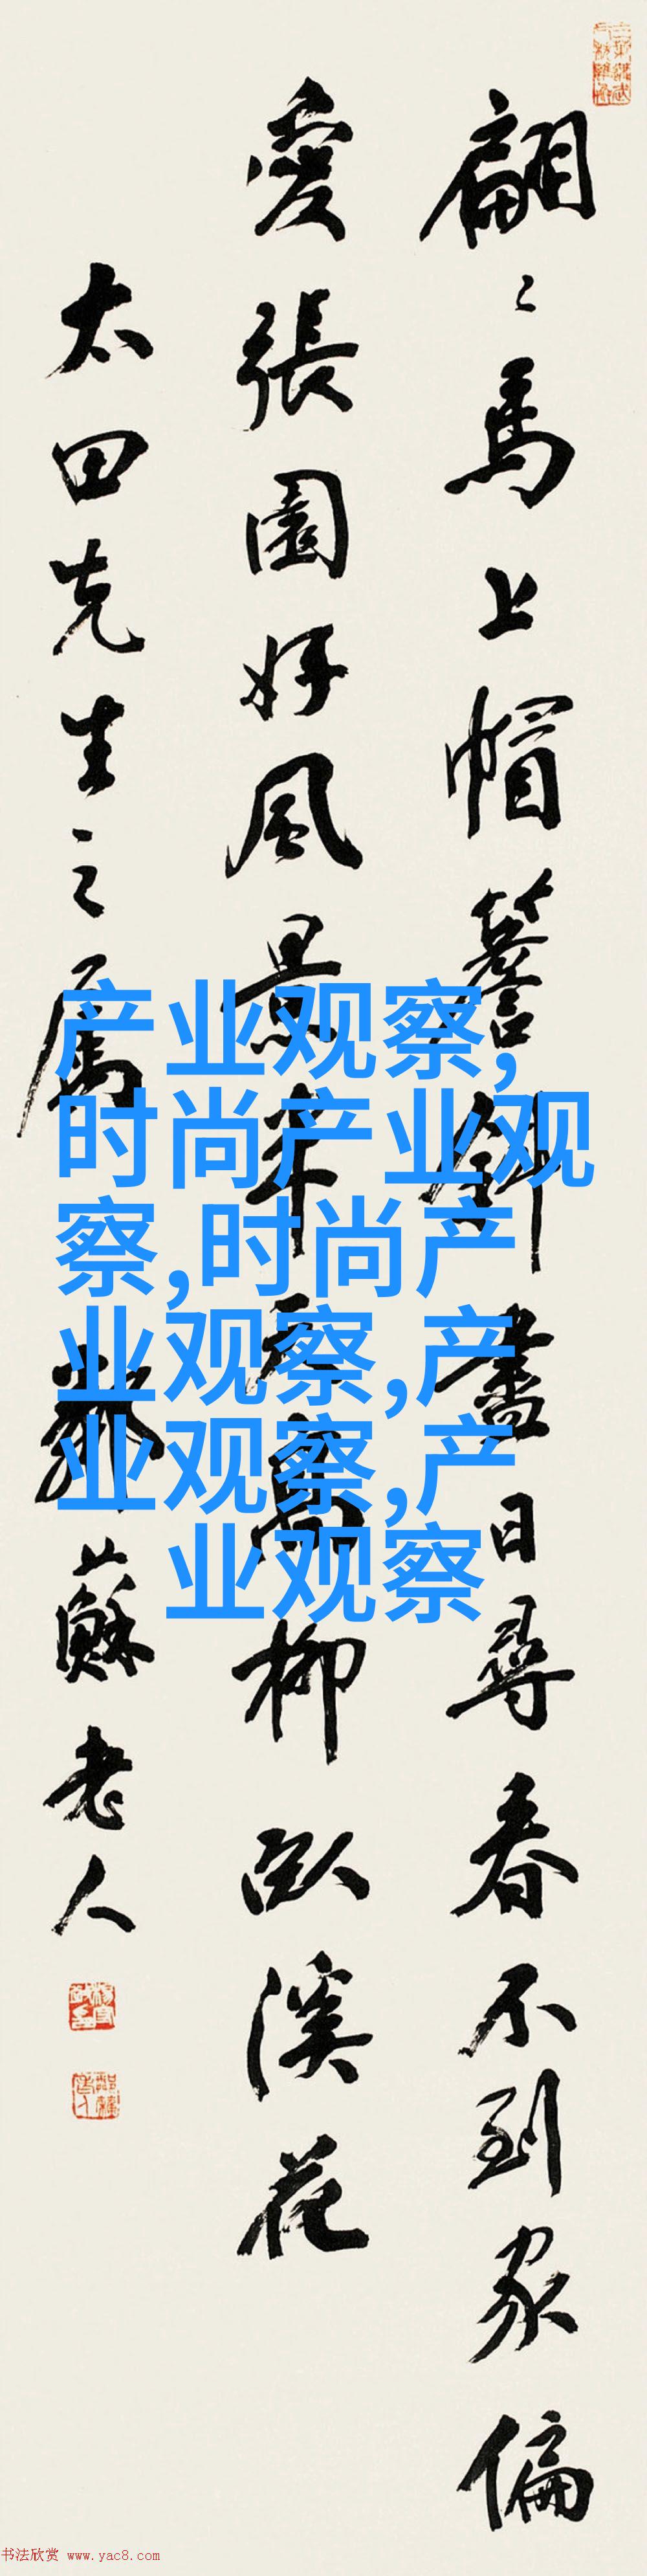 翩〻馬上帽簷斜盡日尋春不到家偏
愛張園好風景半天高柳臥溪花
太田先生之属
鄭蘇老人
产业观察,
时尚产业观
察,时尚产
业观察,产
业观察,产
业观察
书法欣赏 www.yac8.com